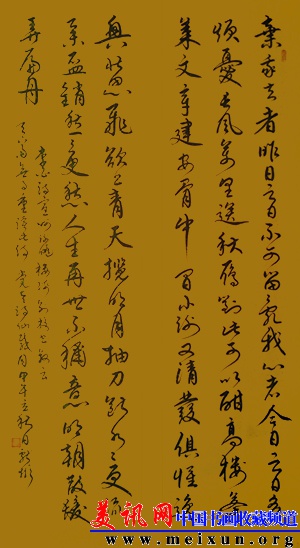 棄我去者昨日之日不可留亂我心者今日之日多
煩憂長風萬里送秋雁對此可以酣高樓蓬
萊文章建安骨中間小謝又清發俱懷逸
興壯思飛欲上青天攬明月抽刀斷水水更流
舉盃銷愁愁更愁人生在世不稱意明朝散髮
弄扁舟
李白詩宣州謝朓樓
甲午立秋日
美讯网 中国书画收藏频道
www.meixun.org